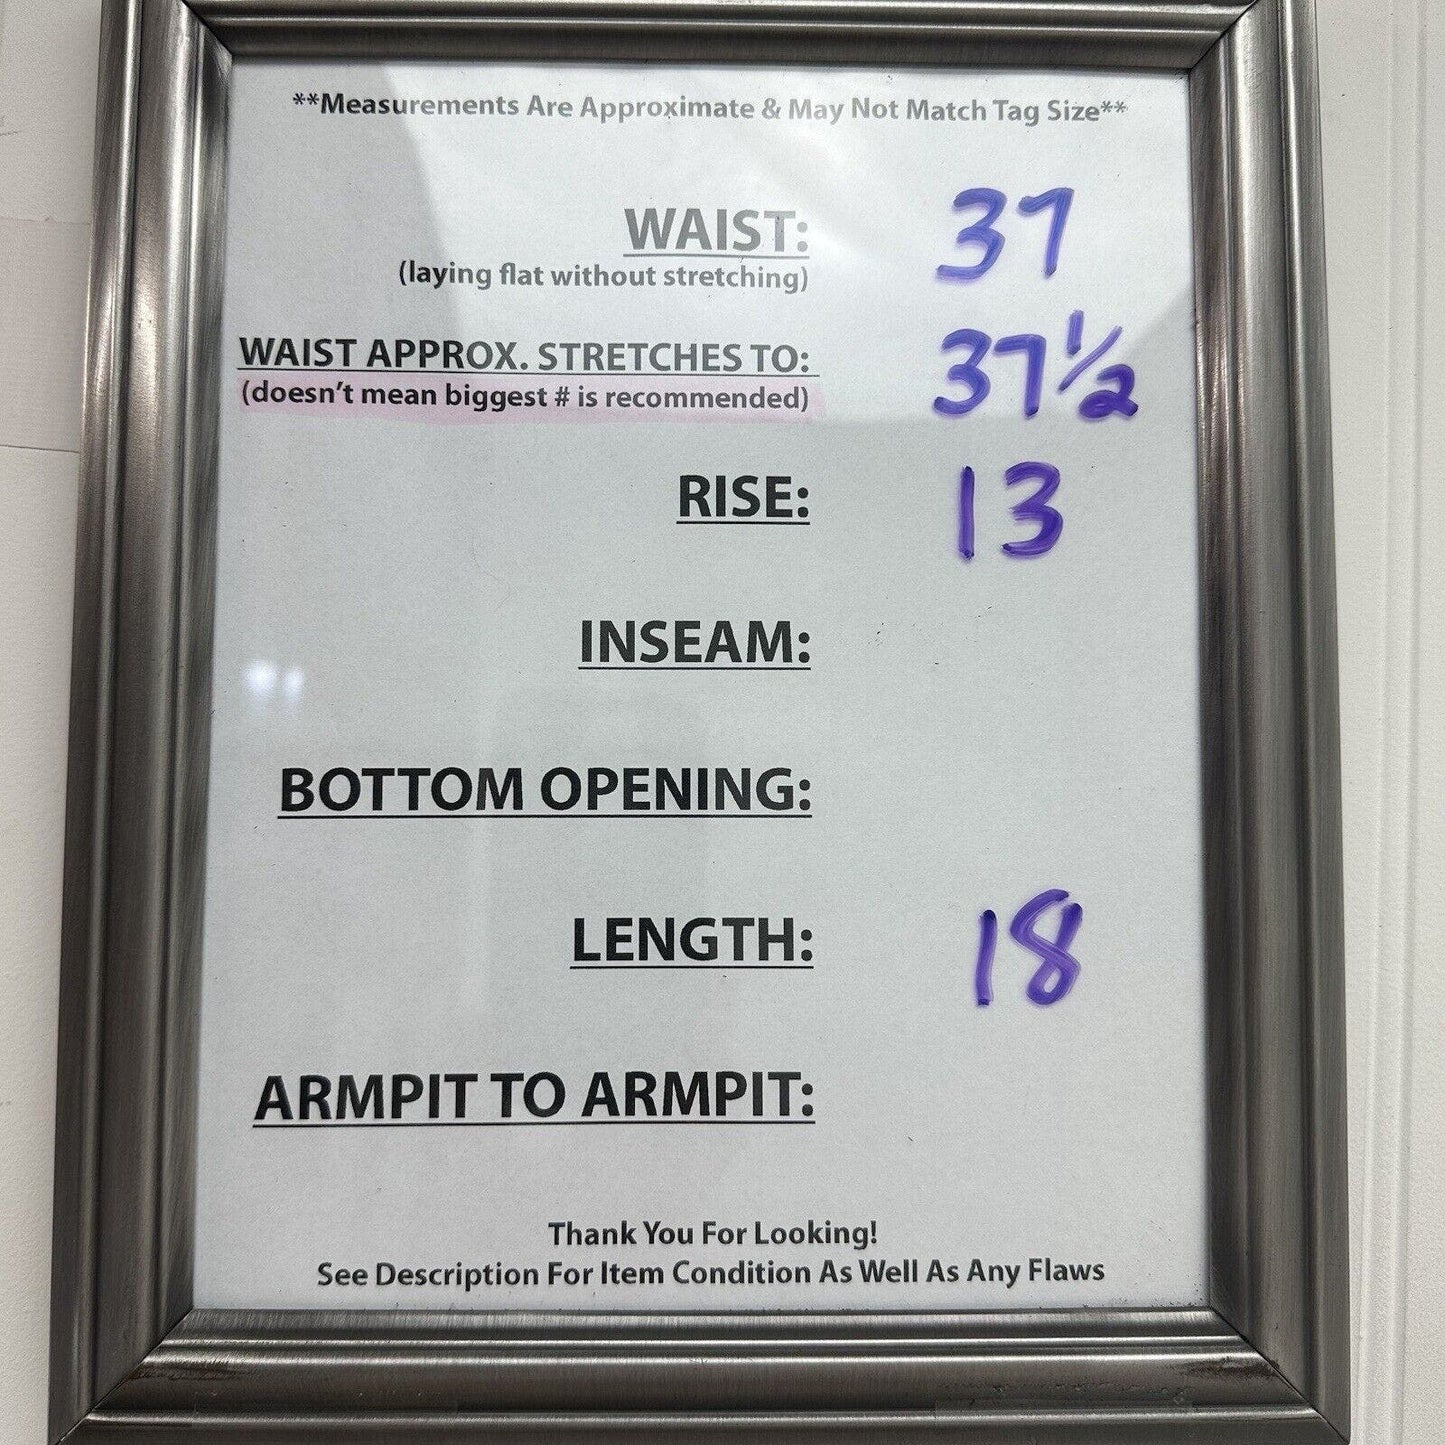 **Measurements Are Approximate & May Not Match Tag Size**
WAIST: 37
(laying flat without stretching)
WAIST APPROX. STRETCHES TO: 37 1/2
(doesn't mean biggest # is recommended)
RISE: 13
INSEAM:
BOTTOM OPENING:
LENGTH: 18
ARMPIT TO ARMPIT:
Thank You For Looking!
See Description For Item Condition As Well As Any Flaws